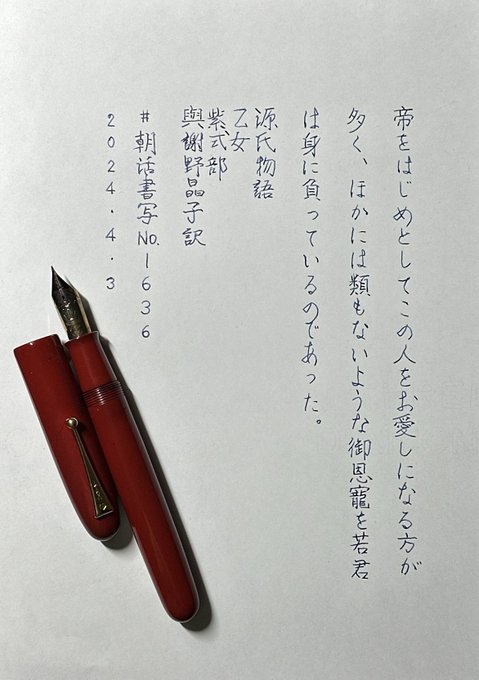 帝をはじめとしてこの人をお愛しになる方が
多く、ほかには類もないような御恩寵を若君
は身に負っているのであった。
源氏物語
乙女
紫式部
與謝野晶子訳
#朝活書写No.1636
2024.4.3